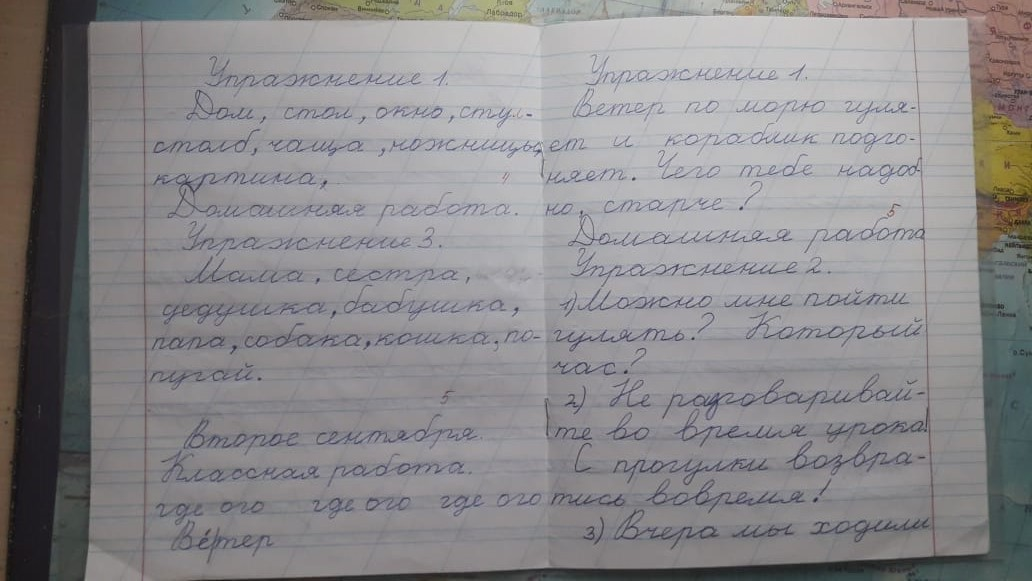 Упражнение 1.
Дом, стол, окно, стул-
столб, чаща, ножницы,
картина,
4
Домашняя работа.
Упражнение 3.
Мама, сестра,
дедушка, бабушка,
папа, собака, кошка, по-
пугай.
5
Второе сентября.
Классная работа.
где ого где ого где ого
Ве́тер
Упражнение 1.
Ветер по морю гуля-
ет и кораблик подго-
няет. Чего тебе надоб
но, старче?
5
Домашняя работа
Упражнение 2.
1) Можно мне пойти
гулять? Который
час?
2) Не разговаривай-
те во время урока!
С прогулки возвра-
тись вовремя!
3) Вчера мы ходили